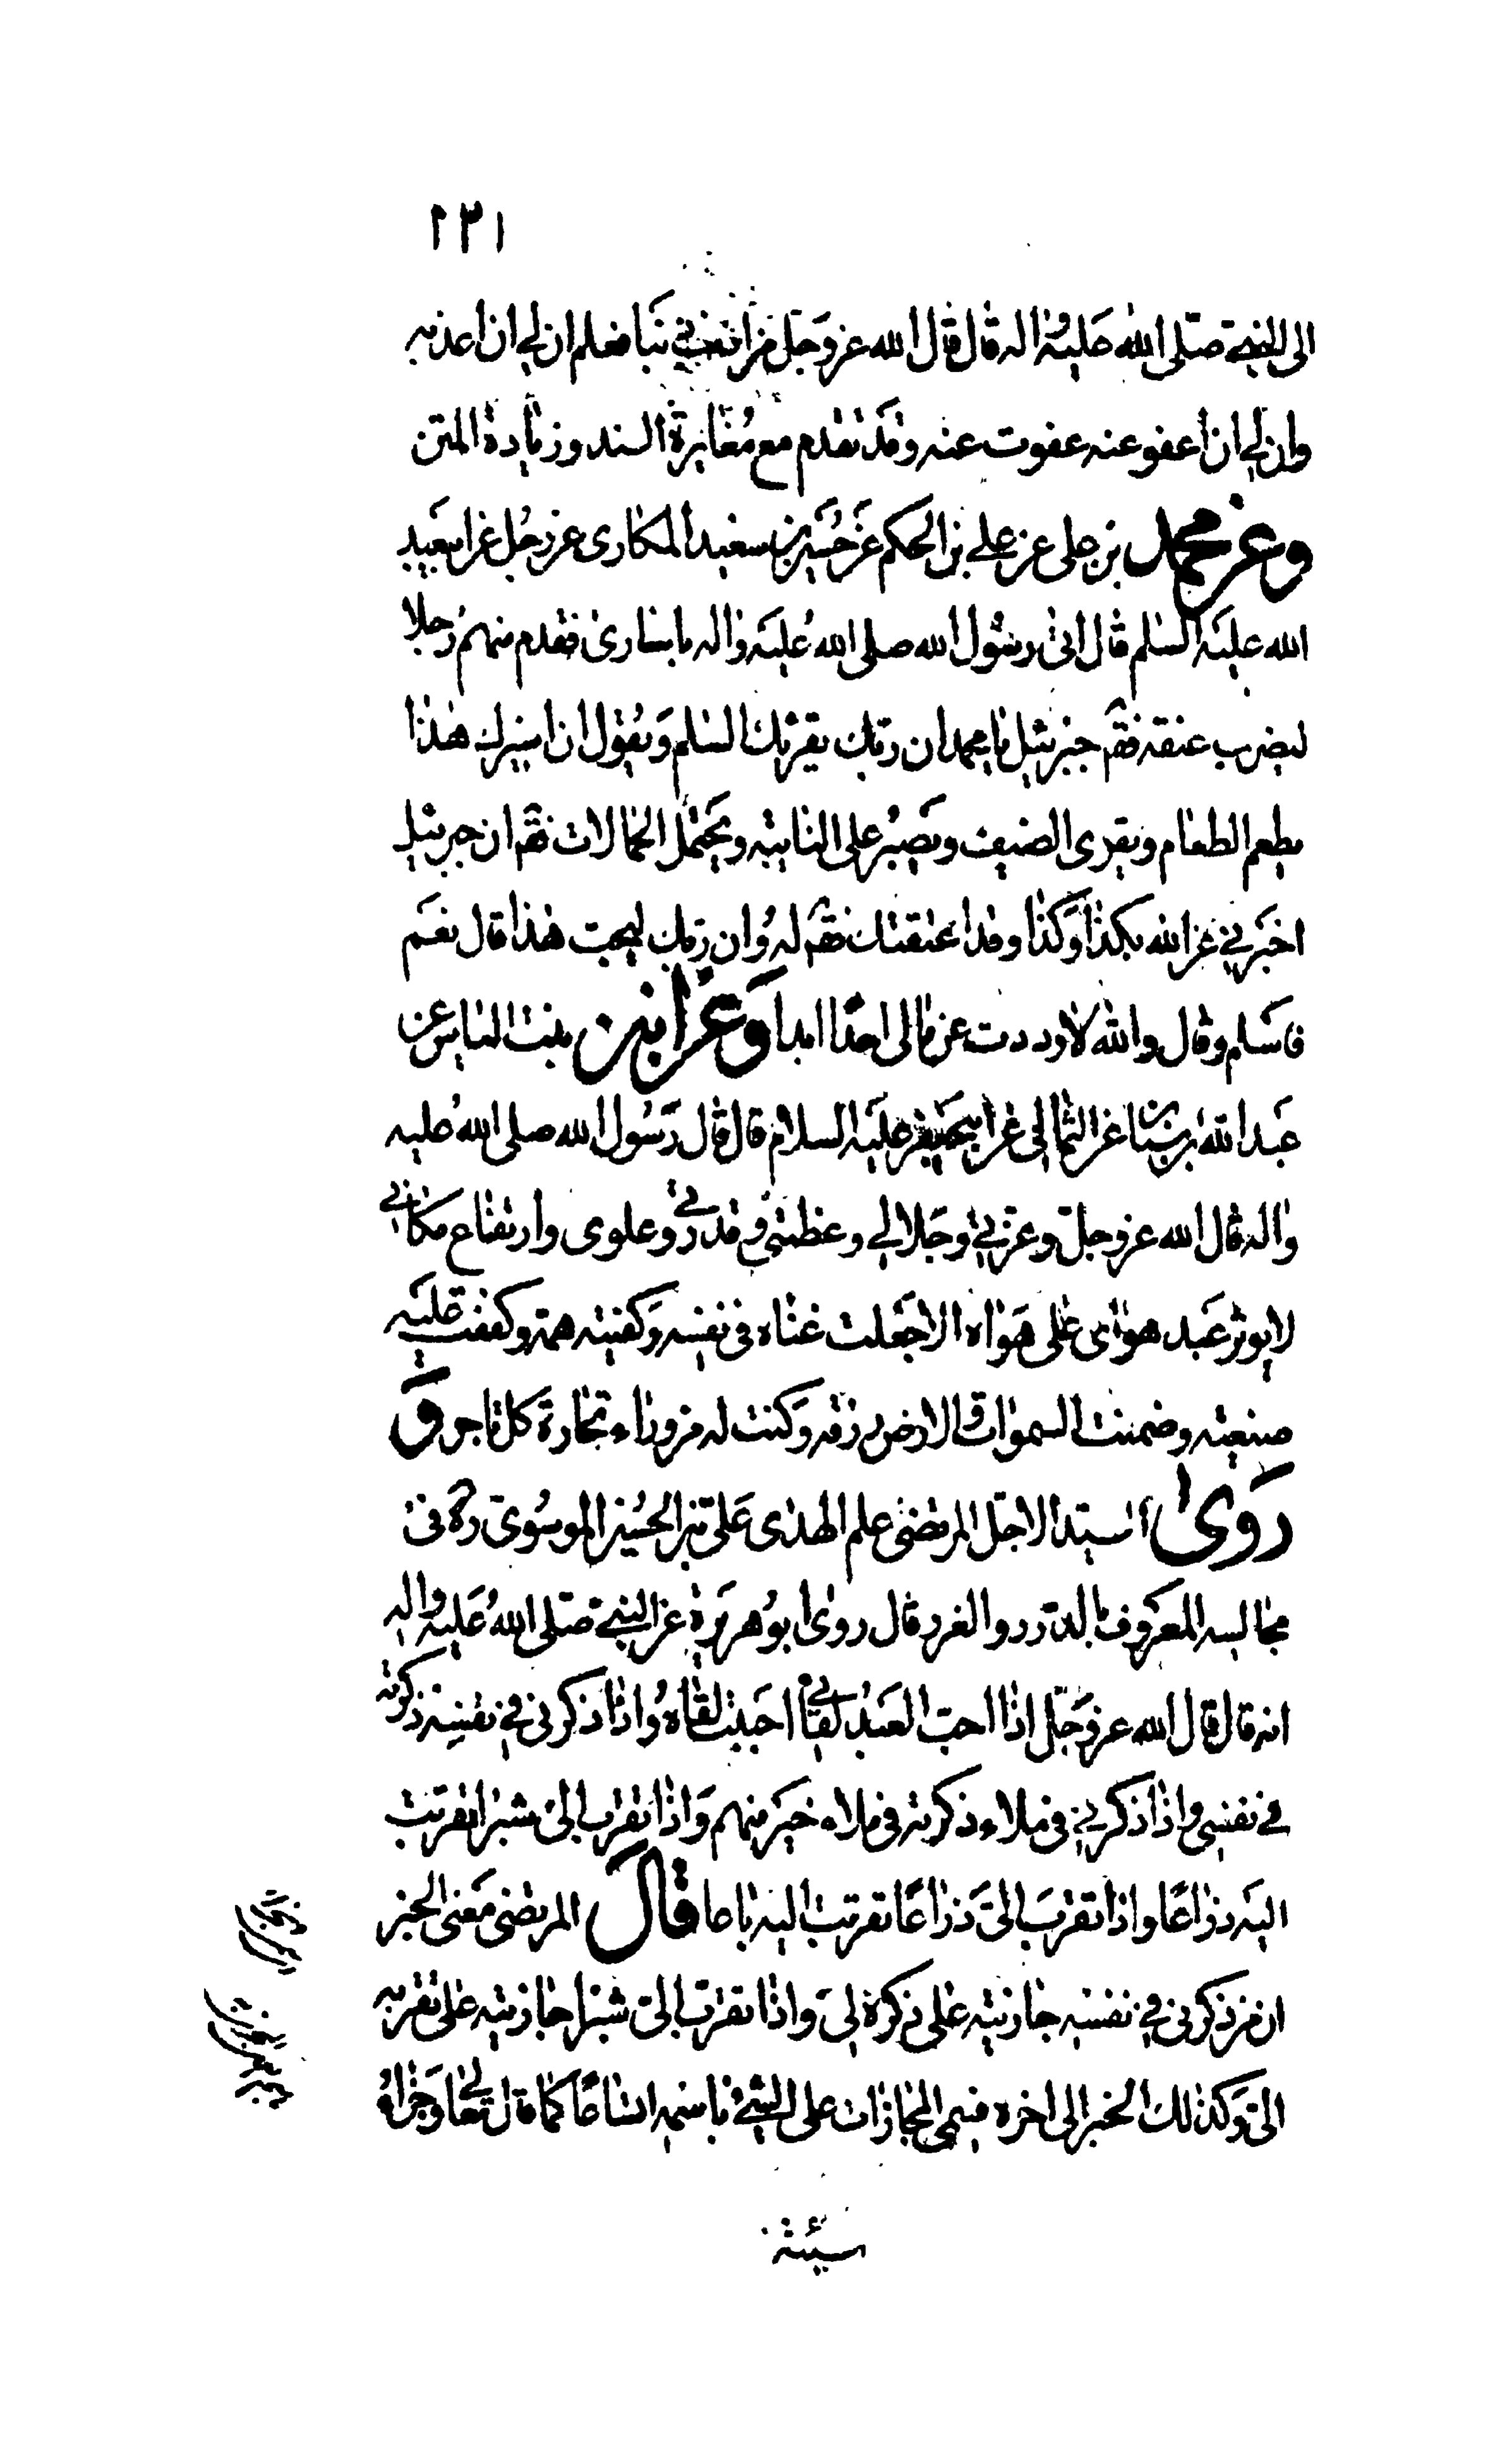 ١٣١
الى النبي صلى الله عليه واله قال قال الله عز وجل من اذنب ذنبا فعلم ان لي ان اعذبه
وان لي ان اعفو عنه عفوت عنه وقد تقدم مع مغايرة السند وزيادة المتن
وعن محمد بن على عن على بن الحكم عن حسين بن سعيد المكارى عن رجل عن ابيعبد
الله عليه السلم قال اتى رسول الله صلى الله عليه واله باسارى فقدم منهم رجلا
ليضرب عنقه فقم جبرئيل يا محمد ان ربك يقرئك السلم ويقول ان اسيرك هذا
يطعم الطعام ويقرى الضيف ويصبر على النايبة ويحتمل الحمالات فقم ان جبرئيل
اخبرني عن الله بكذا وكذا وقد اعتقتك فقم له وان ربك ليحب هذا قال نعم
فاسلم وقال والله لا رددت عن مالى احدا ابدا وعن ابن بنت الياس عن
عبد الله بن سنان عن الثمالي عن ابيجعفر عليه السلام قال قال رسول الله صلى الله عليه
واله قال الله عز وجل وعزتي وجلالي وعظمتي وقدرتي وعلوى وارتفاع مكاني
لا يوثر عبد هواى على هواه الا جعلت غناه فى نفسه وكفيته همه وكففت عليه
ضيعته وضمنت السموات والارض رزقه وكنت له من وراء تجارة كل تاجر و
روى السيد الاجل المرتضى علم الهدى على بن الحسين الموسوى ره فى
مجالسه المعروف بالدرر والغرر قال روى ابو هريرة عن النبي صلى الله عليه واله
انه قال قال الله عز وجل اذا احب العبد لقائي احببت لقاه واذا ذكرنى في نفسه ذكرته
في نفسي واذا ذكرني فى ملاء ذكرته فى ملاء خير منهم واذا تقرب الى شبرا تقربت
اليه ذراعا واذا تقرب الى ذراعا تقربت اليه باعا قال المرتضى معنى الخبر
ان من ذكرنى في نفسه جازيته على ذكره لي واذا تقرب الى شبرا جازيته على تقربه
الى وكذلك الخبر الى اخره فسمى المجازات على الشئ باسمه اتساعا كما قال تعالى وجزاء
سيئة